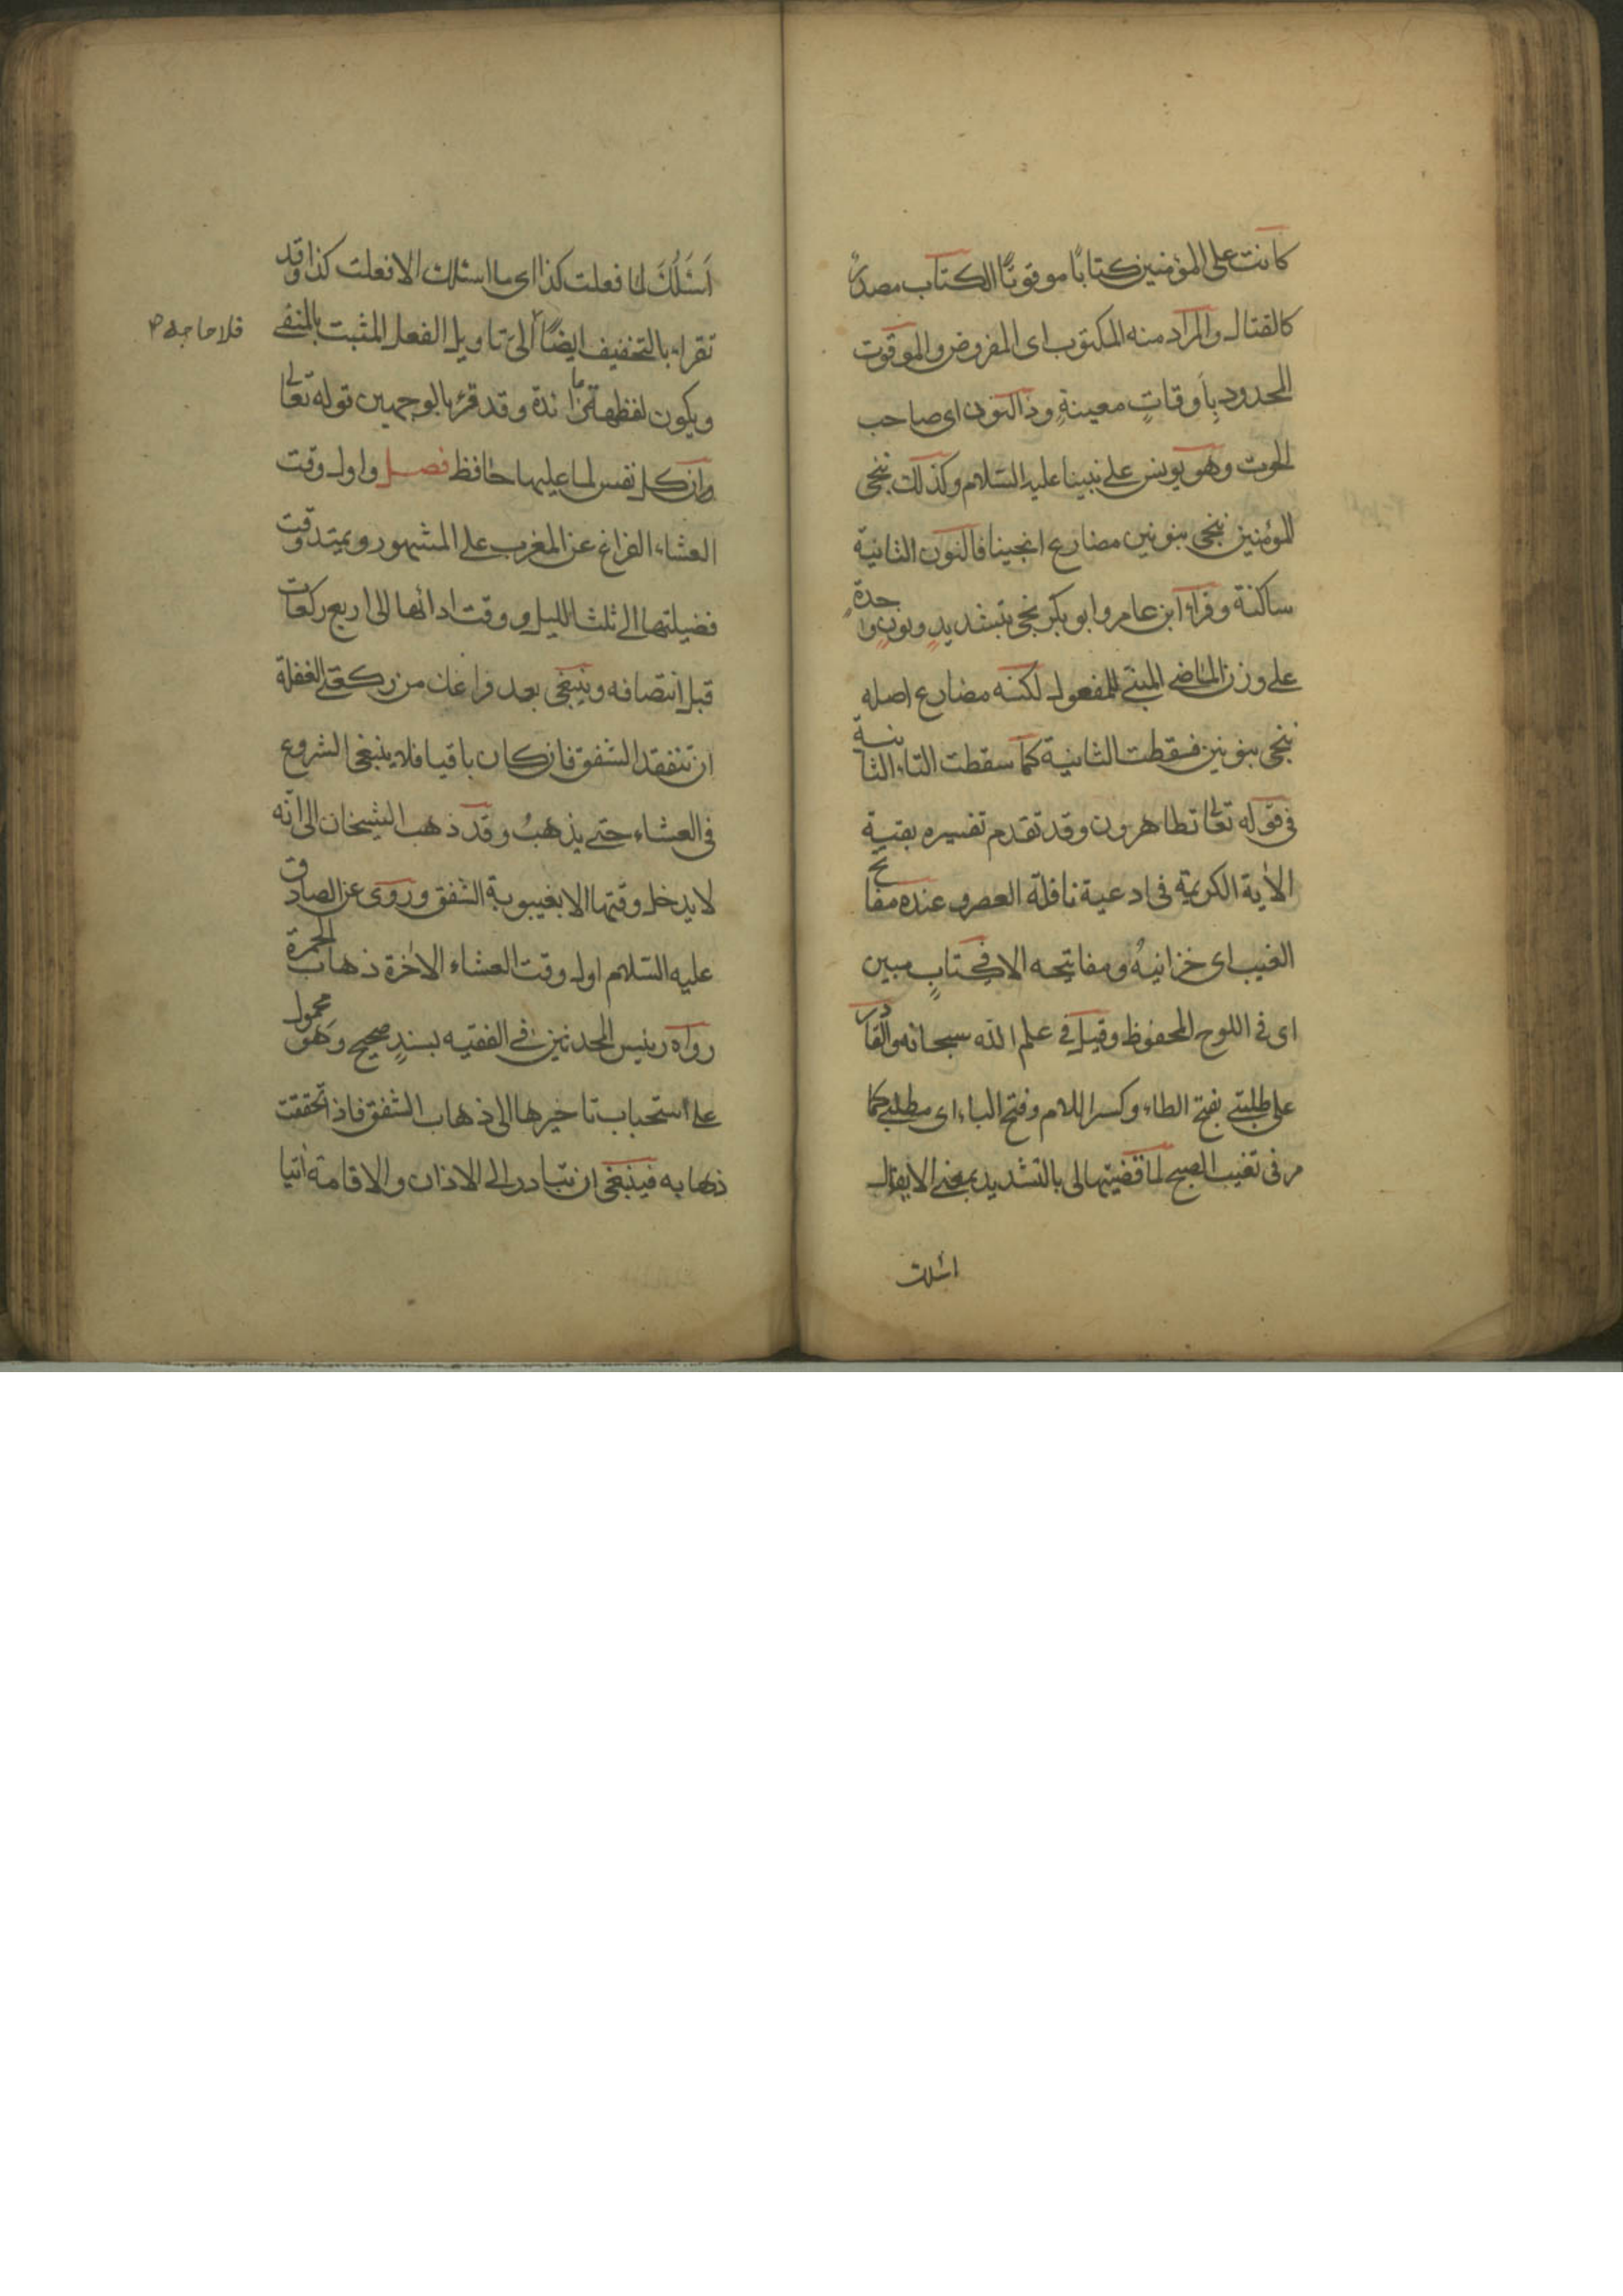 كانت على المؤمنين كتابًا موقوتًا الكتاب مصدرٌ
كالقتال والمراد منه المكتوب اى المفروض والموقوت
المحدود بِاَوقاتٍ معينةٍ وذالنون اى صاحب
الحوت وهو يونس على نبينا عليه السّلام وكذلك ننجى
المؤمنين ننجى بنونين مضارع انجينا فالنون الثانية
ساكنة وقراء ابن عامر وابو بكر نجى بتشديدٍ ونونٍ واحدةٍ
على وزن الماضى المبنى للمفعول لكنه مضارع اصله
ننجى بنونين فسقطت الثانية كما سقطت التاء الثانية
فى قوله تعالى تظاهرون وقد تقدم تفسيره بقية
الأية الكريمة فى ادعية نافلة العصر وعنده مفاتح
الغيب اى خزانيهُ ومفاتيحه الا فى كتابٍ مبين
اى فى اللوح المحفوظ وقيل فى علم الله سبحانه والقادر
على طلبتى بفتح الطاء وكسر اللام وفتح الباء اى مطلبى كما
مر فى تعقيب الصبح لما قضيتها لى بالتشديد بمعنى الا يقال
اسئلك
اَسْئَلُكَ لما فعلت كذا اى ما اسئلك الا فعلت كذا وقد
تقراء بالتخفيف ايضًا الى تاويل الفعل المثبت بالمنفى
فلا حاجة
ويكون لفظة ما زائدة وقد قرئ بالوجهين قوله تعالى
وان كل نفس لما عليها حافظ فصل واول وقت
العشاء الفراغ عن المغرب على المشهور ويمتد وقت
فضيلتها الى ثلث الليل ووقت ادائها الى اربع ركعات
قبل انتصافه وينبغى بعد فراغك من ركعتى الغفلة
ان تتفقد الشفق فان كان باقيا فلا ينبغى الشروع
فى العشاء حتى يذهبُ وقد ذهب الشيخان الى انّه
لا يدخل وقتها الا بغيبوبة الشفق وروى عن الصادق
عليه السّلام اول وقت العشاء الاخرة ذهاب الحمرة
رواه رئيس المحدثين فى الفقيه بسندٍ صحيح وهو محمول
على استحباب تاخيرها الى ذهاب الشفق فاذا تحققت
ذهابه فينبغى ان تبادر الى الاذان والاقامة اتيا